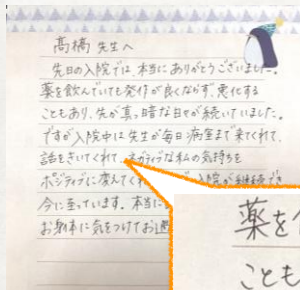 髙橋先生へ
先日の入院では、本当にありがとうございました。
薬を飲んでいても発作が良くならず、悪化する
こともあり、先が真っ暗な日々が続いていました。
ですが入院中は先生が毎日病室まで来てくれて、
話をきいてくれて、ネガティブな私の気持ちを
ポジティブに変えてくれ 入院が継続でき
今に至っています。本当に
お身体に気をつけてお過
薬を
こども